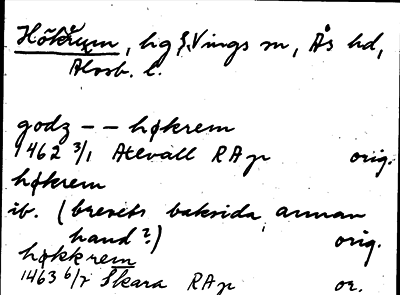 Hökrum, hg S. Vings sn, Ås hd,
Älvsb. l.
godz – – høkrem
1462 3/1 Atevall RAp orig.
høkrem
ib. (brevets baksida, annan
hand?) orig.
høkkrem
1463 6/7 Skara RAp or.